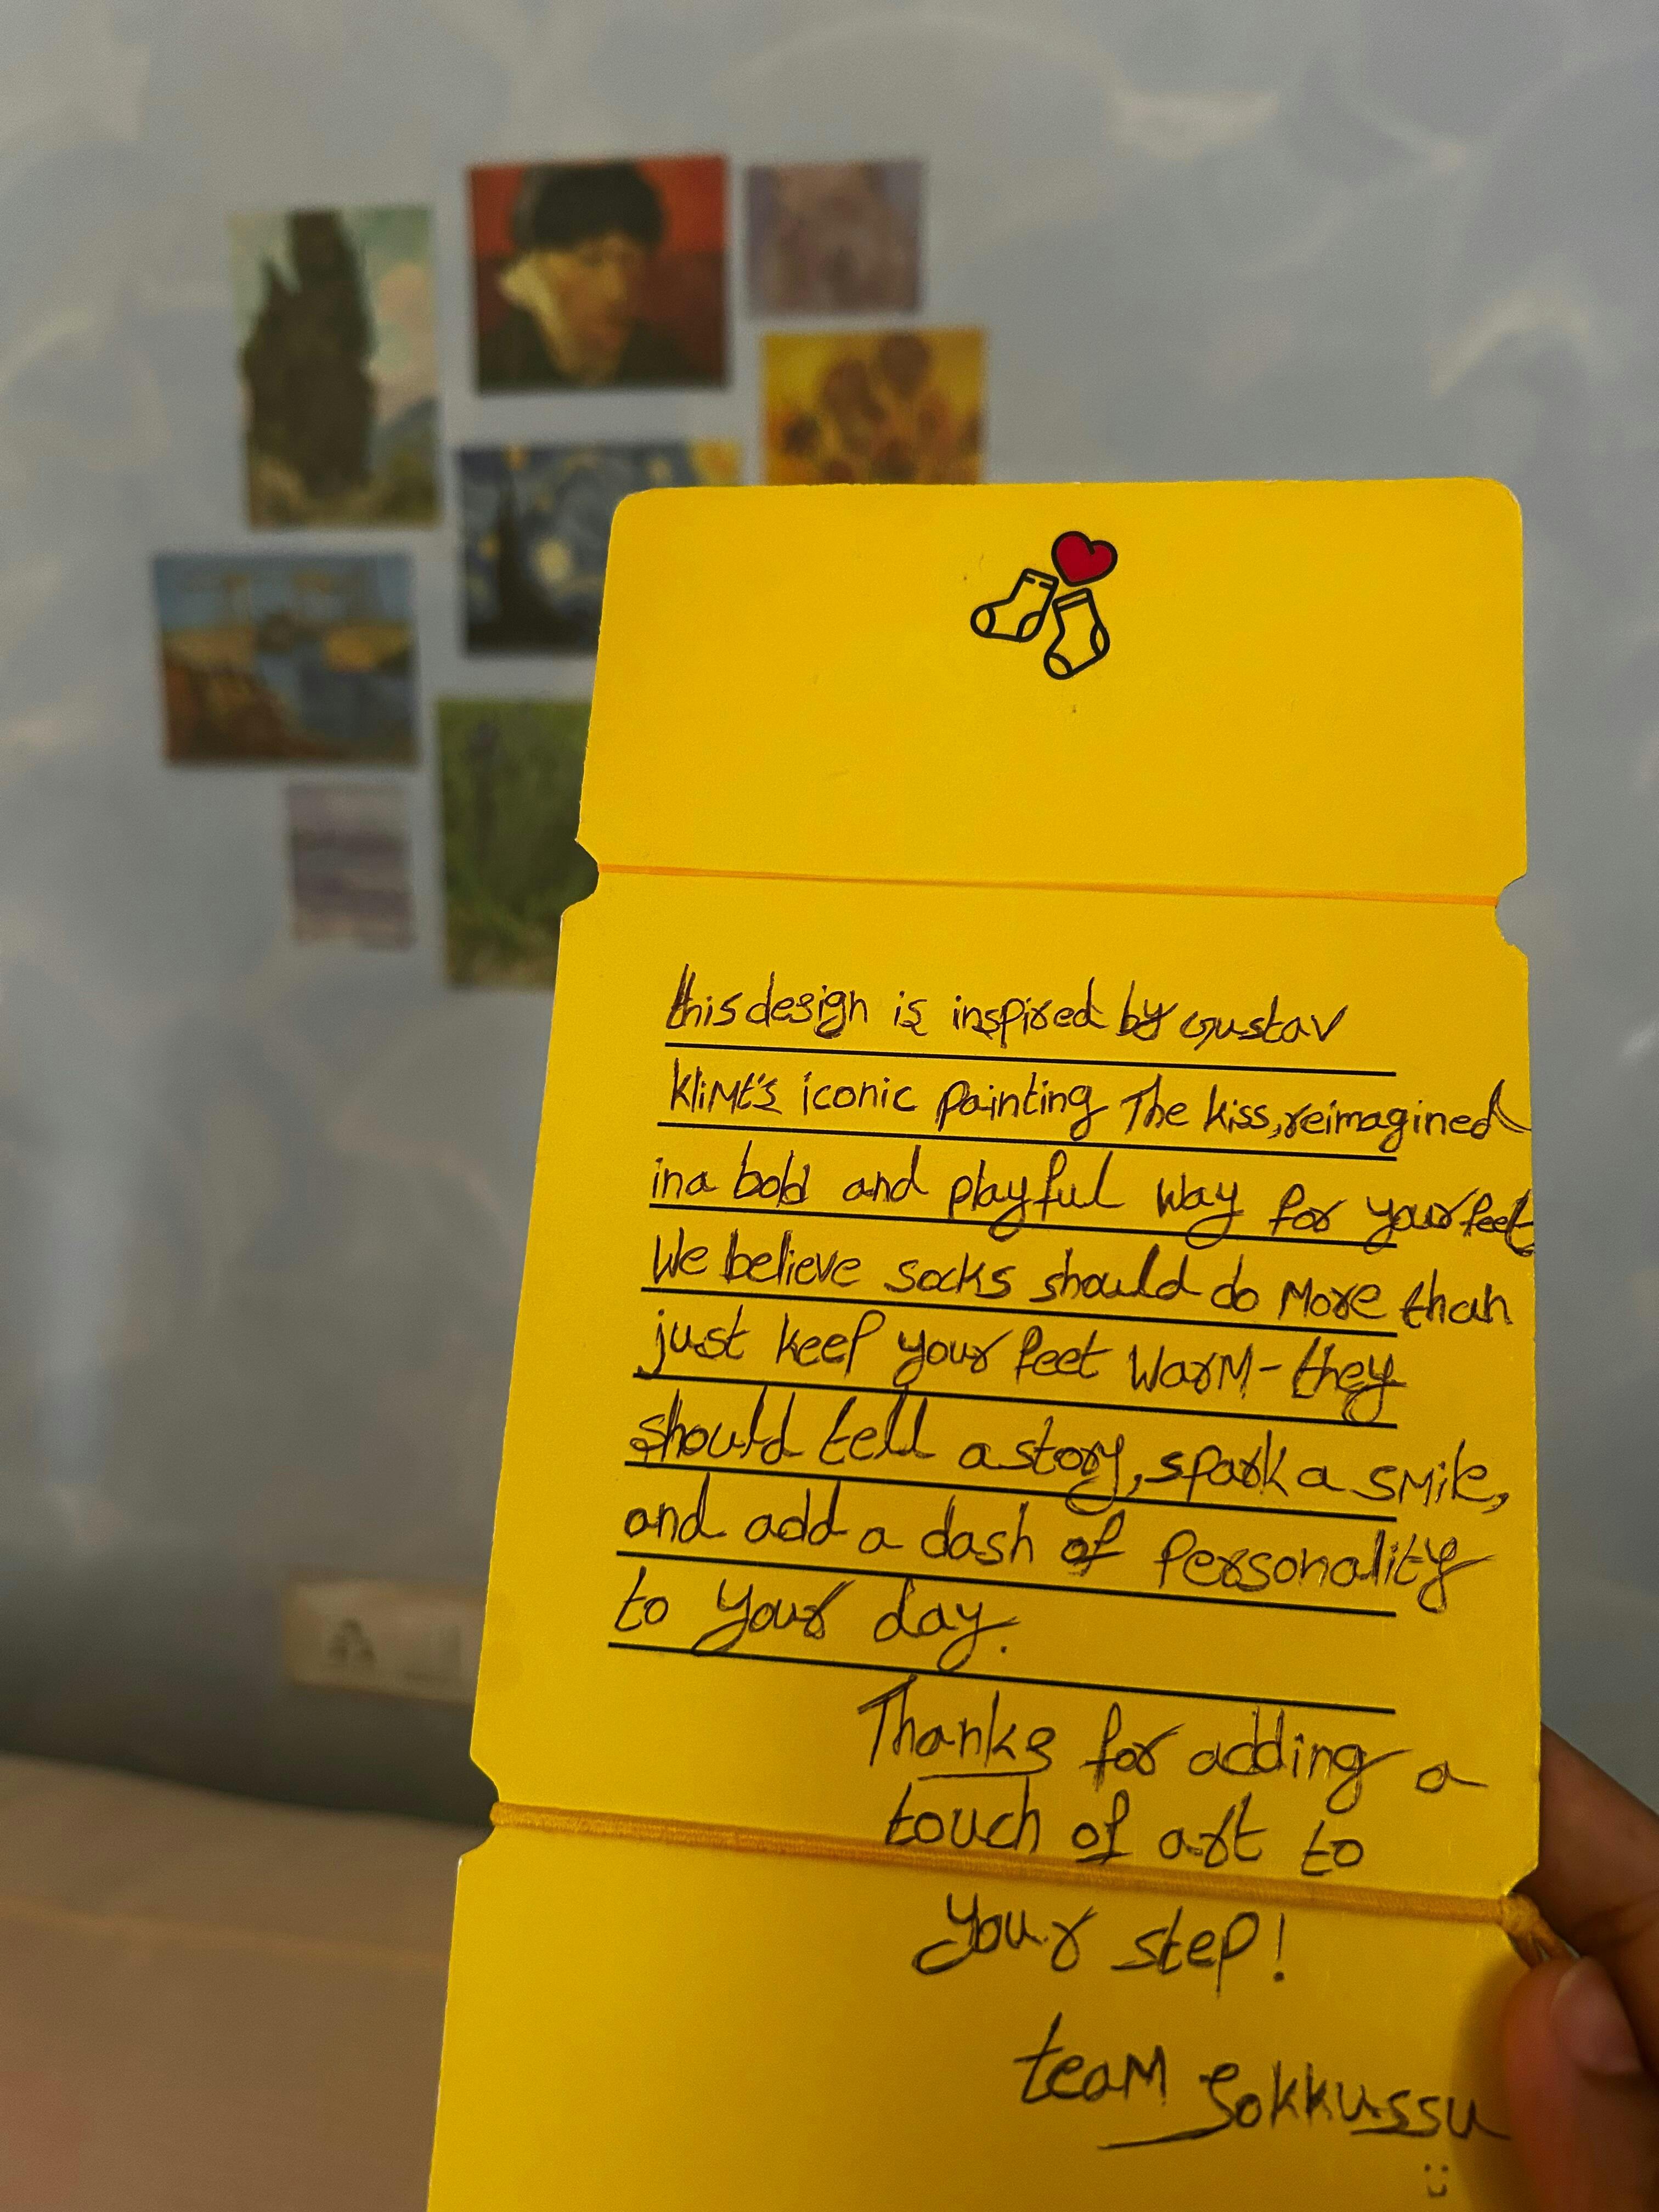 this design is inspired by Gustav
KliMt's iconic painting The kiss, reimagined
in a bold and playful way for your feet
We believe socks should do More than
just keep your feet WarM - they
should tell a story, spark a sMile,
and add a dash of Personality
to your day.
Thanks for adding a
touch of art to
your step!
teaM Sokkussu